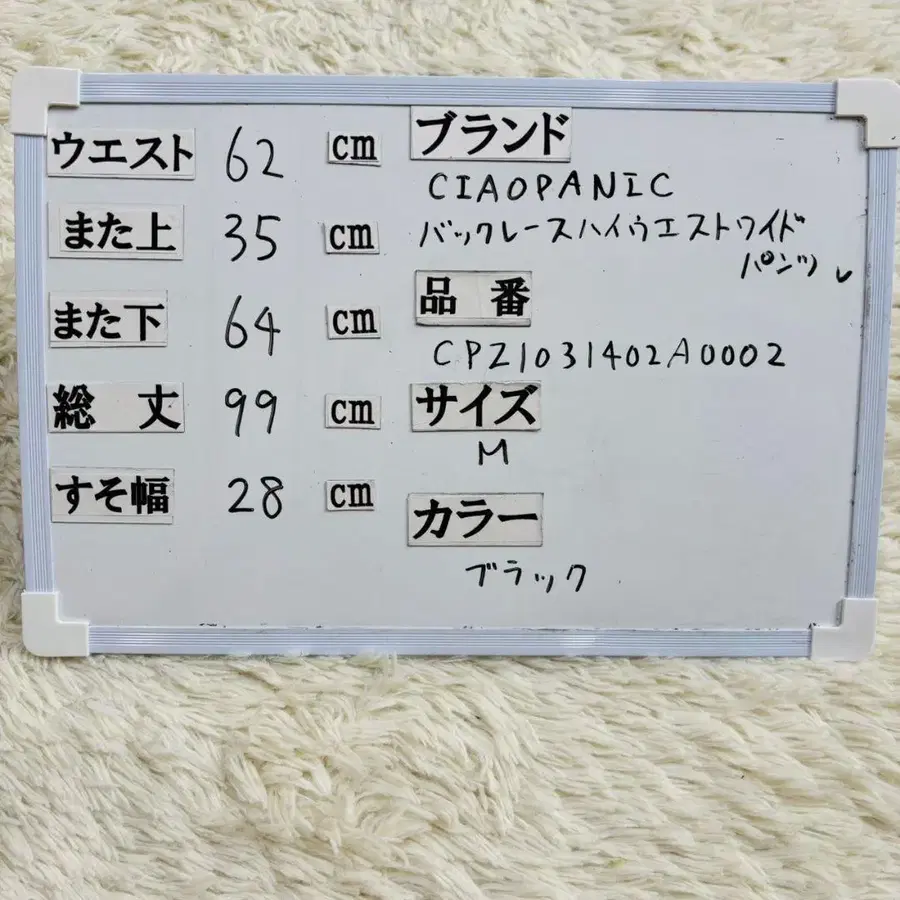 ウエスト 62 cm
また上 35 cm
また下 64 cm
総 丈 99 cm
すそ幅 28 cm
ブランド
CIAOPANIC
バックレースハイウエストワイド
パンツ
品 番
CPZ1031402A0002
サイズ
M
カラー
ブラック